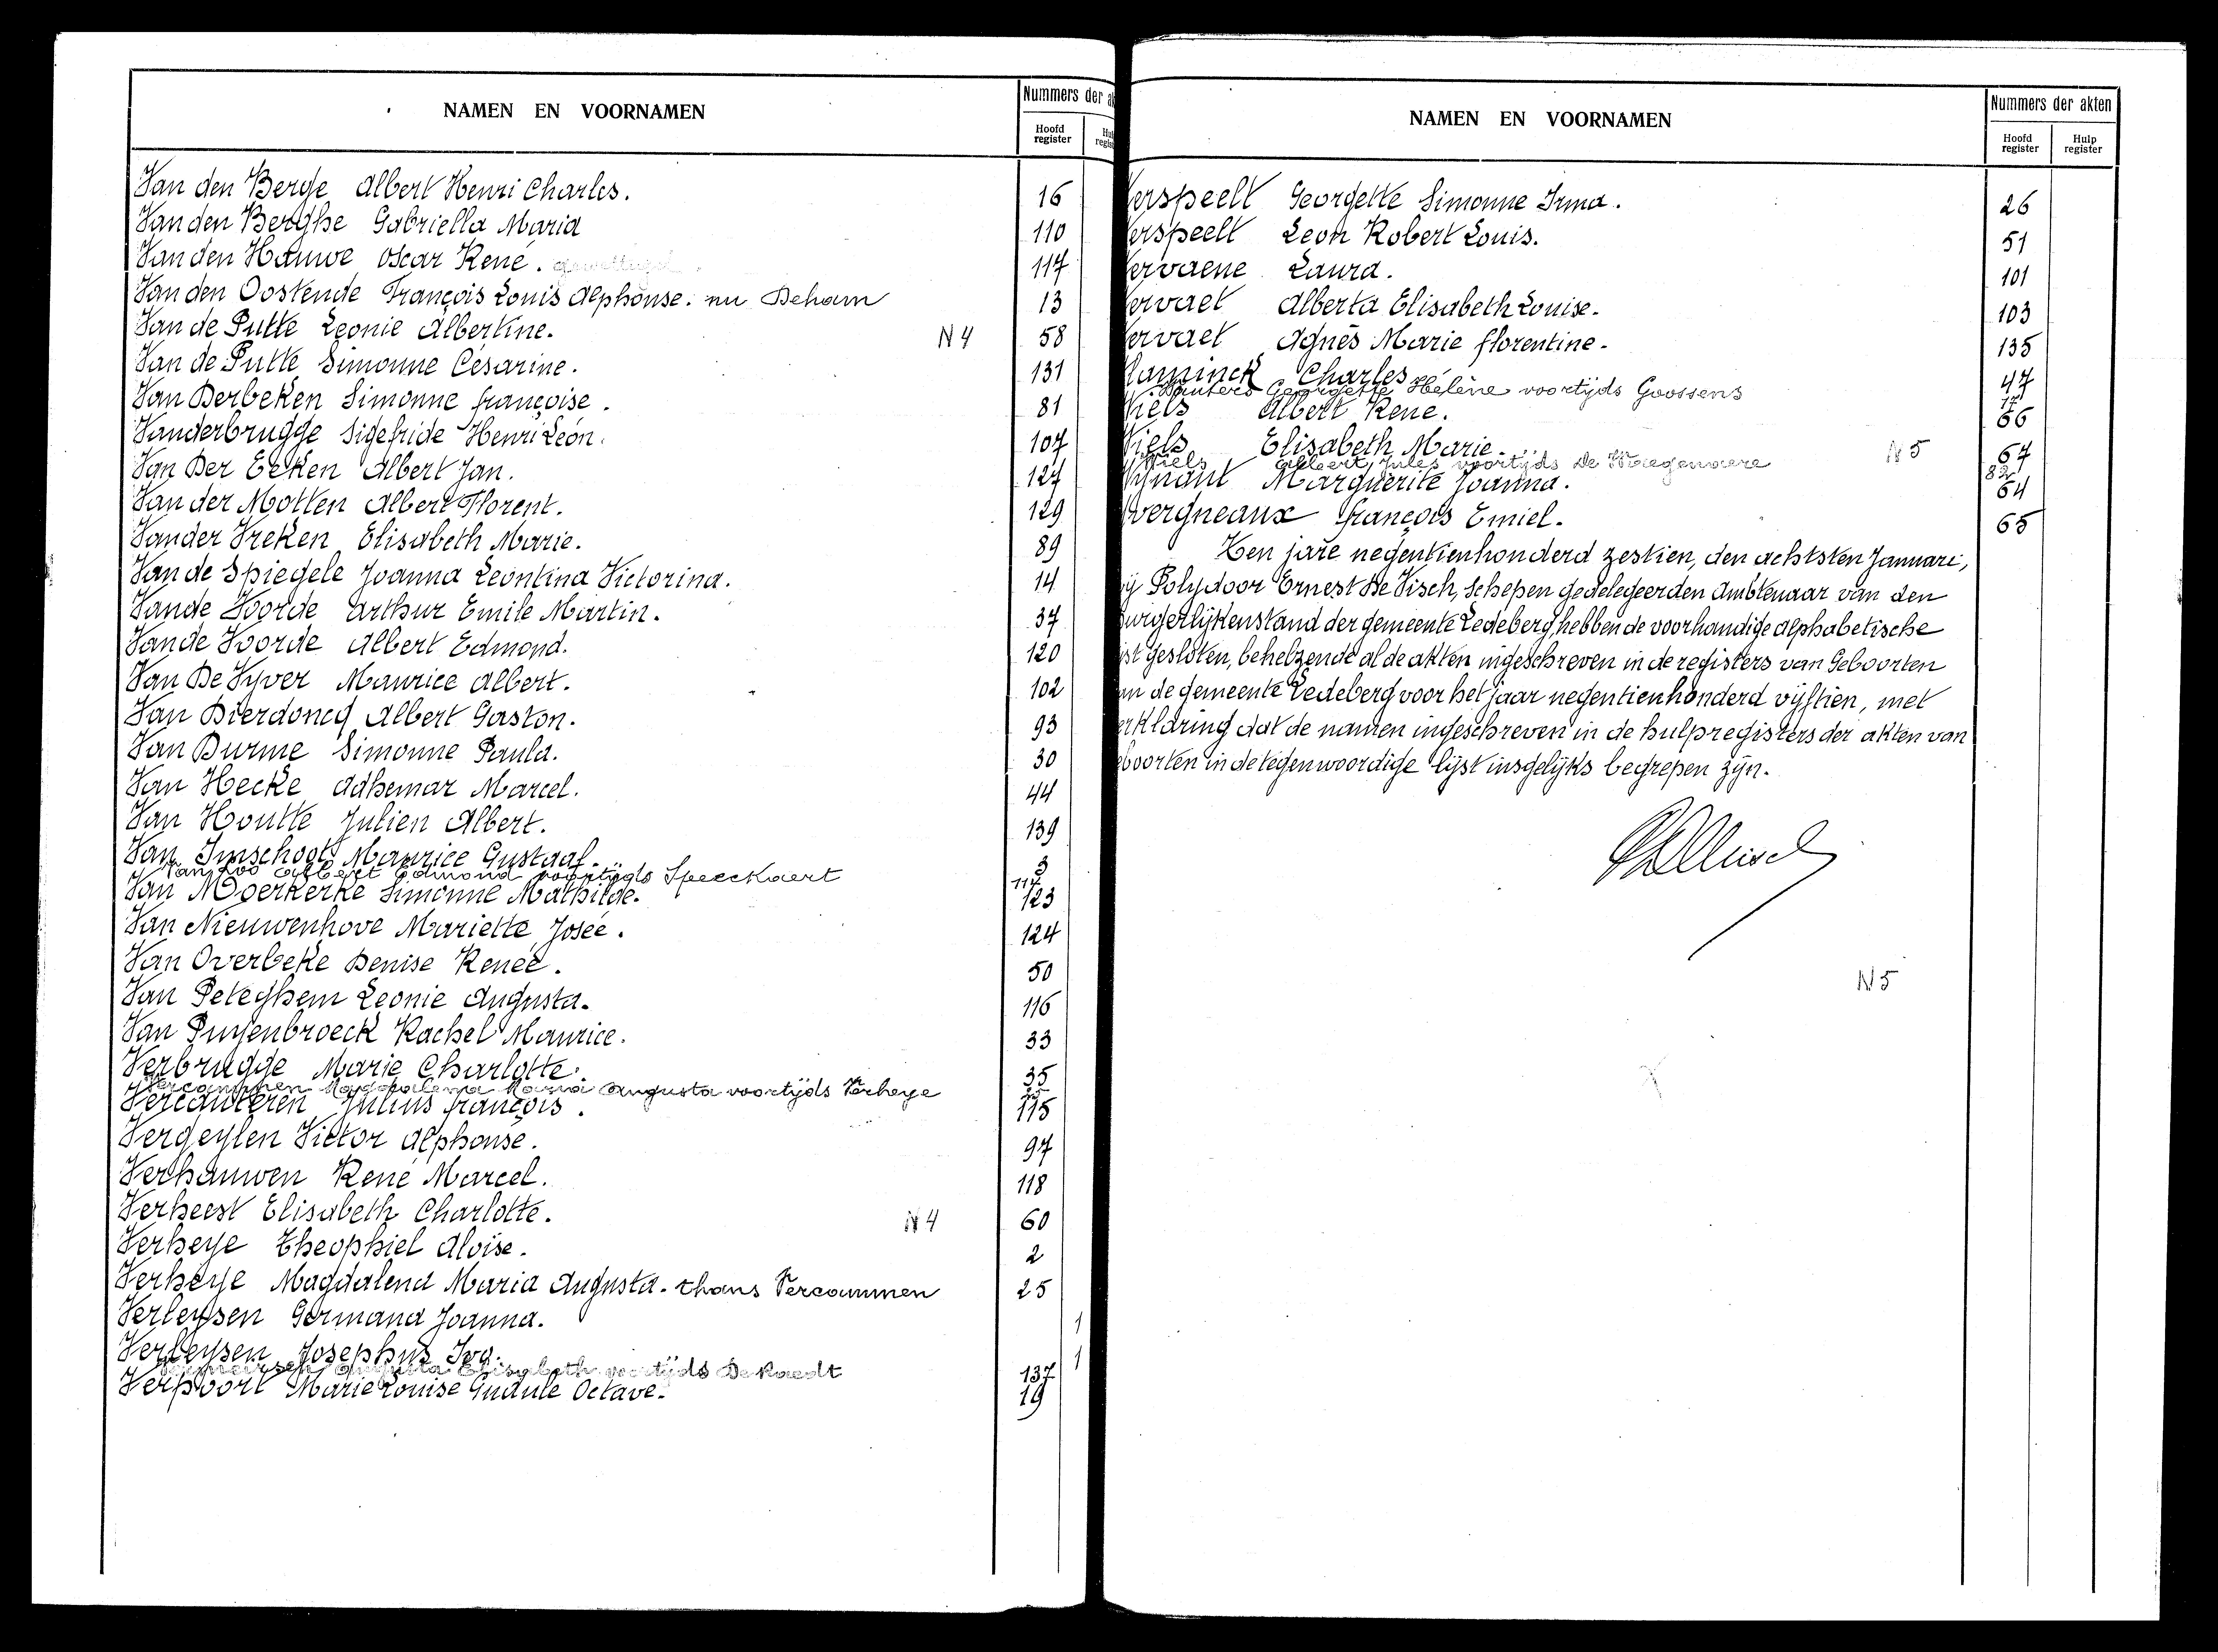 NAMEN EN VOORNAMEN
Nummers der
Hoofd register
Van den Berge Albert Henri Charles. 16
Van den Berghe Gabriella Maria 110
Van den Hauwe Oscar René. 117
Van den Oostende François Louis Alphonse. nu Deham 13
Van de Putte Leonie Albertine. N4 58
Van de Putte Simonne Césarine. 131
Van Derbeken Simonne françoise. 81
Vanderbrugge Sigefride Henri Léon. 107
Van Der Eeken Albert Jan. 127
Van der Motten Albert Florent. 129
Vander Vreken Elisabeth Marie. 89
Van de Spiegele Joanna Leontina Victorina. 14
Vande Voorde Arthur Emile Martin. 37
Vande Voorde Albert Edmond. 120
Van De Vyver Maurice Albert. 102
Van Dierdoncq Albert Gaston. 93
Van Durme Simonne Paula. 30
Van Hecke Adhemar Marcel. 44
Van Houtte Julien Albert. 139
Van Imschoot Maurice Gustaaf. 3
Van Loo Albert Edmond voortijds Speeckaert 117
Van Moerkerke Simonne Mathilde. 123
Van Nieuwenhove Mariette Josée. 124
Van Overbeke Denise Renée. 50
Van Peteghem Leonie Augusta. 116
Van Puyenbroeck Rachel Maurice. 33
Verbrugge Marie Charlotte. 35
Vercammen Magdalena Maria Augusta voortijds Verheye 25
Vercauteren Julius françois. 115
Vergeylen Victor Alphonse. 97
Verhauwen René Marcel. 118
Verheest Elisabeth Charlotte. N4 60
Verheye Theophiel Aloïse. 2
Verheye Magdalena Maria Augusta. thans Vercammen 25
Verleysen Germana Joanna. 1
Verleysen Josephus Ivo. 1
Elisabeth voortijds De Raedt 137
Verpoort Marie Louise Gudule Octave. 19
NAMEN EN VOORNAMEN
Nummers der akten
Hoofd register
Hulp register
erspeelt Georgette Simonne Irma. 26
erspeelt Leon Robert Louis. 51
ervaene Laura. 101
ervaet Alberta Elisabeth Louise. 103
ervaet Agnès Marie florentine. 135
laminck Charles 47
Wauters Georgette Hélène voortijds Goossens 17
Wiels Albert René. 66
Wiels Elisabeth Marie. N5 67
Wiels Albert Jules voortijds De Waegenaere 82
Wynant Marguerite Joanna. 64
Yvergneaux françois Emiel. 65
Ten jare negentienhonderd zestien, den achtsten Januari,
ij Polydoor Ernest De Visch, Schepen gedelegeerden Ambtenaar van den
burgerlijkenstand der gemeente Ledeberg, hebben de voorhandige alphabetische
ijst gesloten, behelzende al de akten ingeschreven in de registers van Geboorten
an de gemeente Ledeberg voor het jaar negentienhonderd vijftien, met
erklaring dat de namen ingeschreven in de hulpregisters der akten van
eboorten in de tegenwoordige lijst insgelijks begrepen zijn.
N5